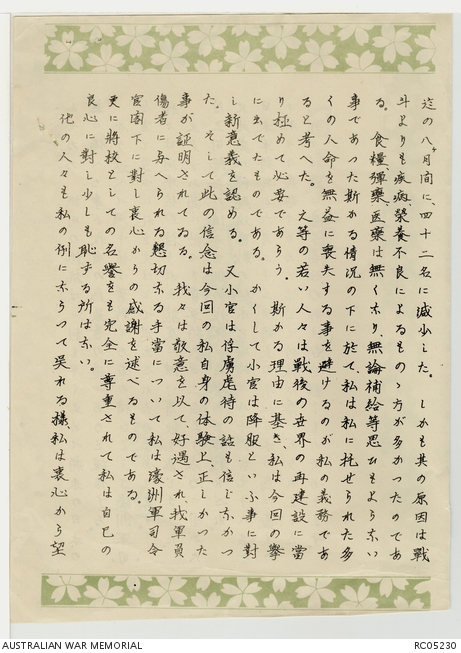 迄の八ヶ月間に、四十二名に減少した。しかも其の原因は戦
斗よりも疾病、榮養不良によるものゝ方が多かったのであ
る。食糧、彈藥、医藥は無くなり、無論補給等思ひもよらない
事であった斯かる情況の下に於て、私は私に托せられた多
くの人命を無益に喪失する事を避けるのが私の義務であ
ると考へた。之等の若い人々は戦後の世界の再建設に當
り極めて必要であらう。斯かる理由に基き、私は今回の擧
に出でたものである。かくして小官は降服といふ事に對
し新意義を認める。又小官は俘虜虐待の話も信じなかつ
た。そして此の信念は今回の私自身の体験上、正しかった
事が証明されてゐる。我々は敬意を以て、好遇され、我軍員
傷者に与へられる懇切なる手當について私は濠洲軍司令
官閣下に對し衷心からの感謝を述べるものである。
更に將校としての名譽をも完全に尊重されて私は自己の
良心に對し少しも恥ずる所はない。
他の人々も私の例にならつて呉れる樣、私は衷心から望
AUSTRALIAN WAR MEMORIAL
RC05230